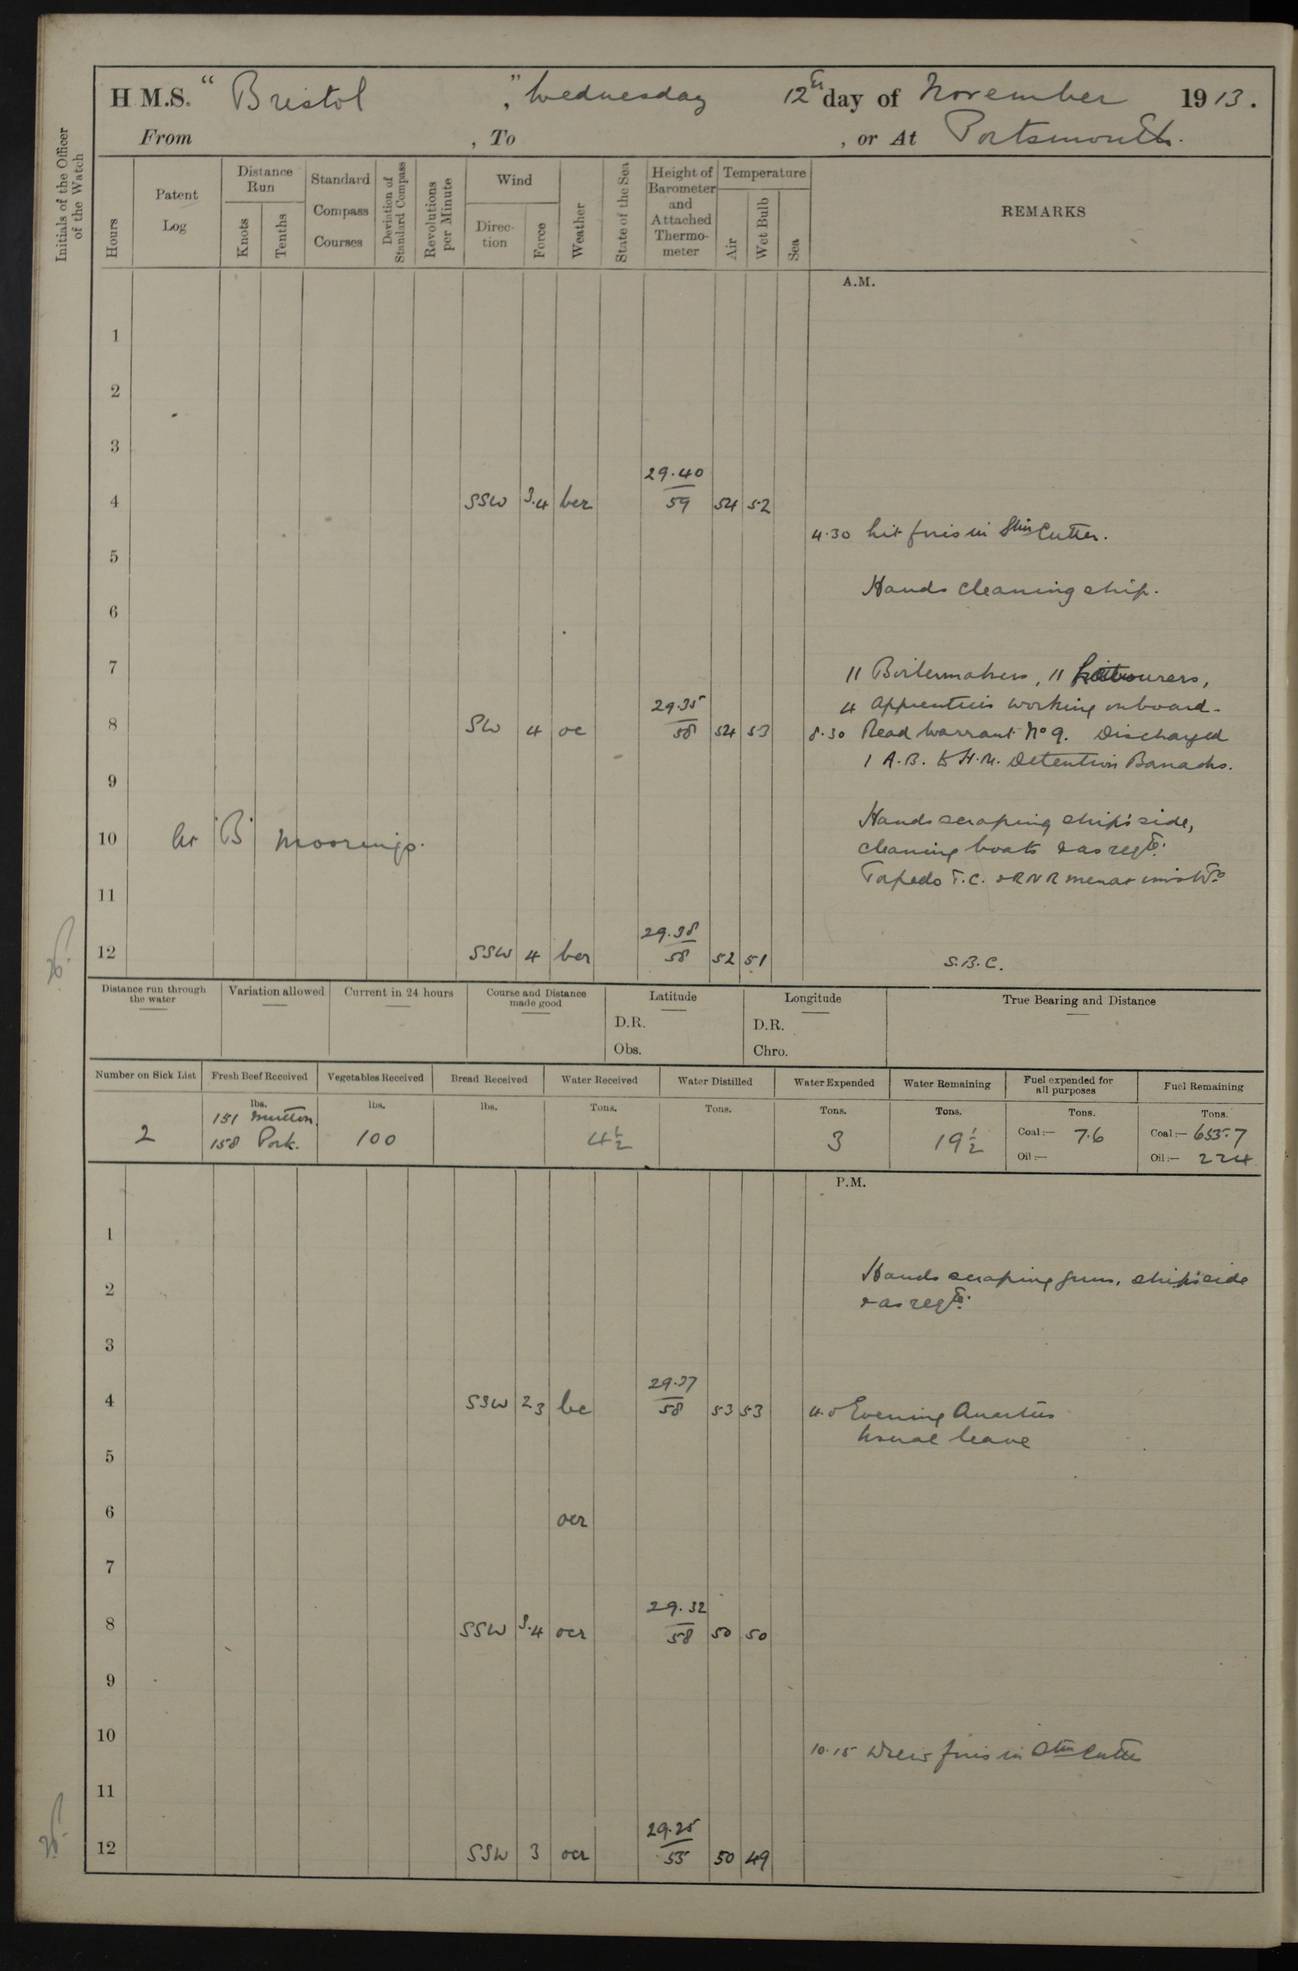 H.M.S. "Bristol", Wednesday 12th day of November 1913.
From , To , or At Portsmouth.
Initials of the Officer of the Watch
Hours
Patent Log
Distance Run
Knots
Tenths
Standard Compass Courses
Deviation of Standard Compass
Revolutions per Minute
Wind
Direction
Force
Weather
State of the Sea
Height of Barometer and Attached Thermometer
Temperature
Air
Wet Bulb
Sea
REMARKS
A.M.
1
2
3
4 SSW 3.4 bcr 29.40/59 54 52
4.30 Lit fires in Stm Cutter.
5
Hands cleaning ship.
6
7
11 Boilermakers, 11 Labourers,
4 Apprentices working onboard.
8 SW 4 oc 29.35/58 54 53
8.30 Read Warrant No 9. Discharged
1 A.B. to H.M. Detention Barracks.
9
Hands scraping ship's side,
10 At 'B' Moorings.
cleaning boats & as reqte.
Torpedo T.C. & RNR men at
11
12 SSW 4 bcr 29.38/58 52 51
S.B.C.
Distance run through the water
Variation allowed
Current in 24 hours
Course and Distance made good
Latitude
D.R.
Obs.
Longitude
D.R.
Chro.
True Bearing and Distance
Number on Sick List
Fresh Beef Received
Vegetables Received
Bread Received
Water Received
Water Distilled
Water Expended
Water Remaining
Fuel expended for all purposes
Fuel Remaining
lbs. lbs. lbs. Tons. Tons. Tons. Tons. Tons. Tons.
2
151 Mutton.
158 Pork.
100
4 1/2
3
19 1/2
Coal:— 7.6
Oil:—
Coal:— 653.7
Oil:— 224
P.M.
1
2
Hands scraping guns, ship's side
& as reqte.
3
4 SSW 2 3 bc 29.37/58 53 53
4.0 Evening Quarters
Usual leave
5
6 ocr
7
8 SSW 3.4 ocr 29.32/58 50 50
9
10
10.15 Drew fires in Stm Cutter
11
12 SSW 3 ocr 29.25/55 50 49